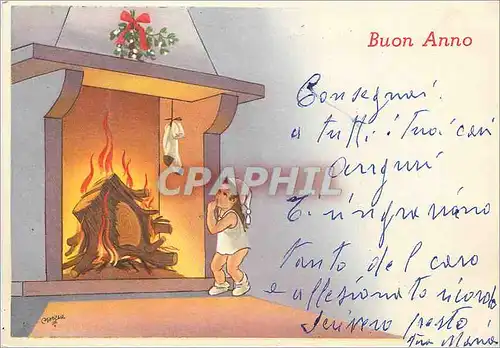 Buon Anno
Consegnai
a tutti i tuoi cari
auguri
Ti ringraziano
tanto del caro
e affezionato ricordo
Scrivero presto
tua Maria
CPAPHIL